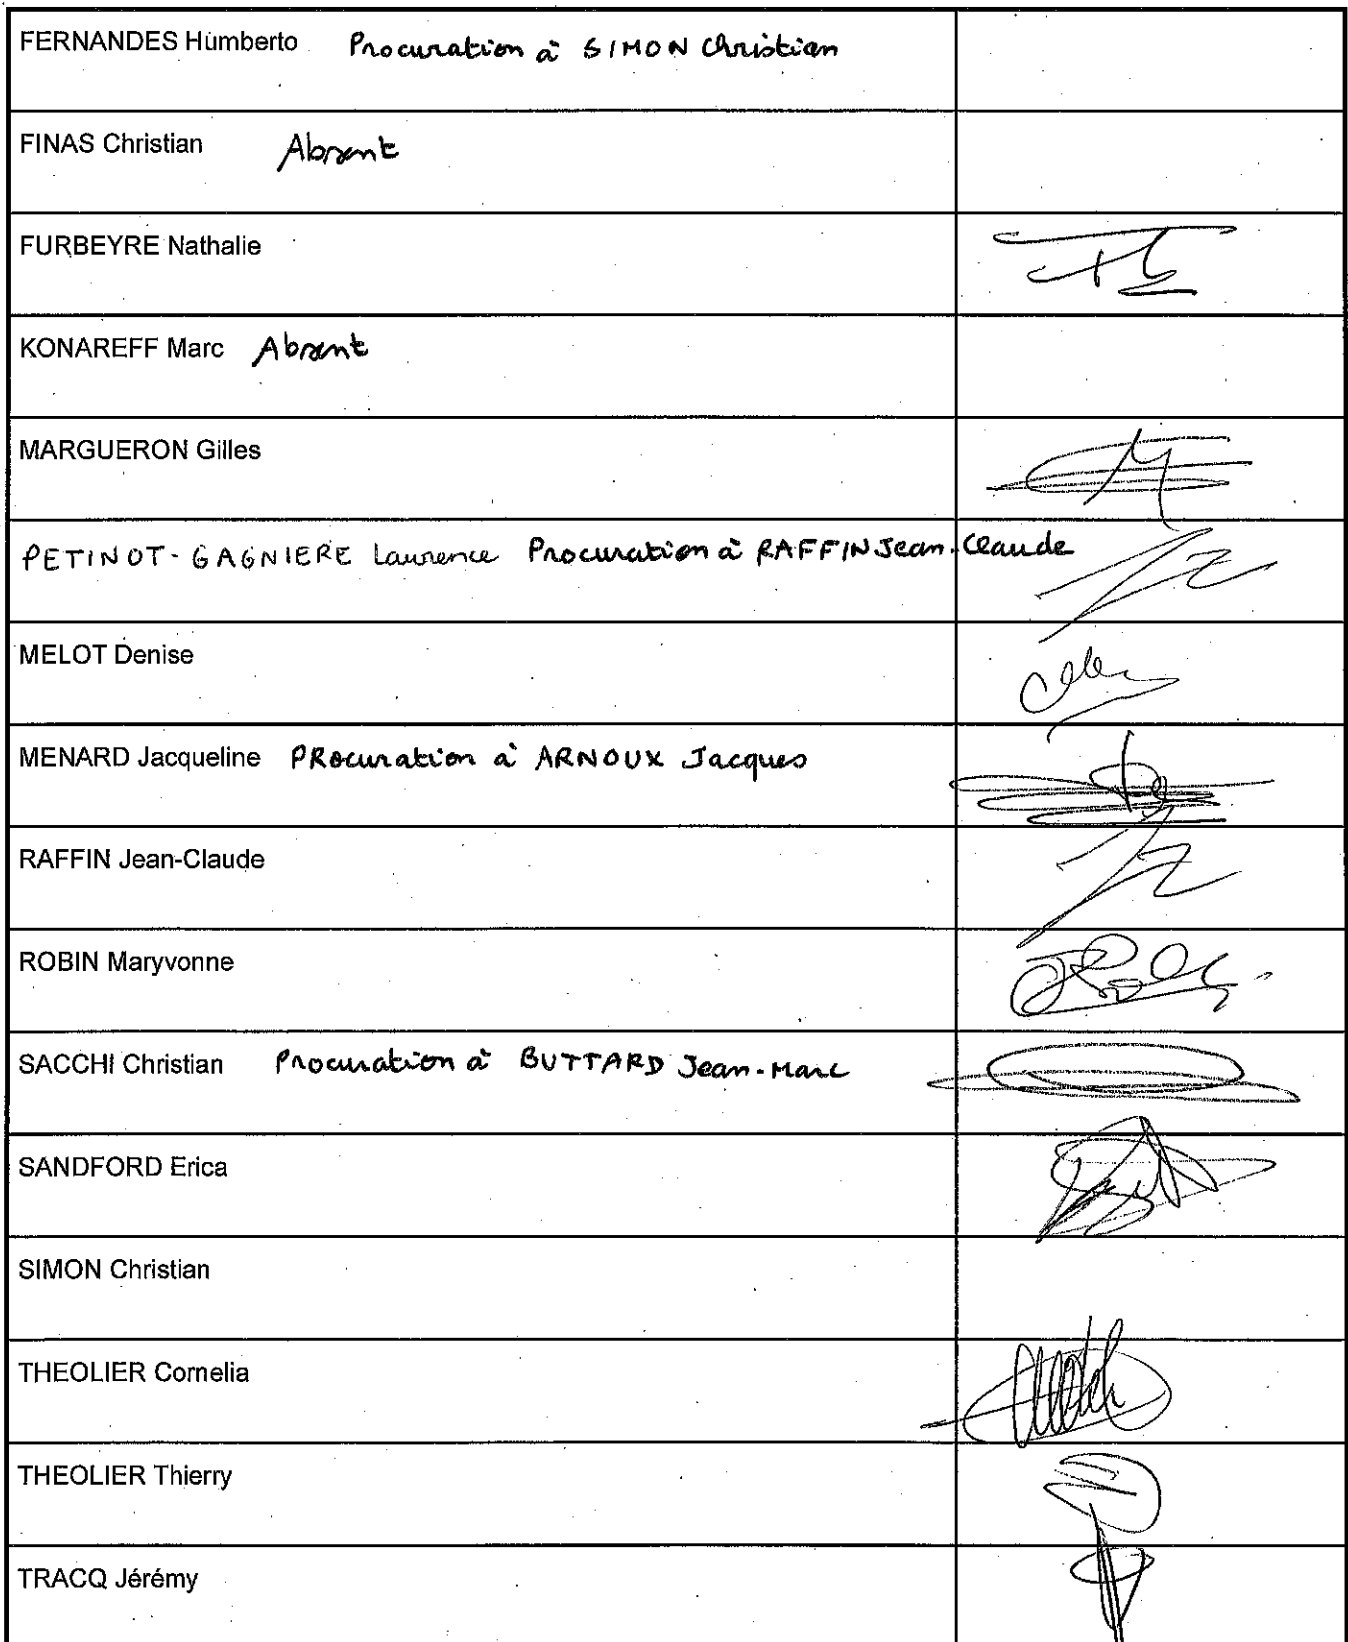 FERNANDES Humberto Procuration à SIMON Christian
FINAS Christian Absent
FURBEYRE Nathalie
KONAREFF Marc Absent
MARGUERON Gilles
PETINOT-GAGNIERE Laurence Procuration à RAFFIN Jean-Claude
MELOT Denise
MENARD Jacqueline PRocuration à ARNOUX Jacques
RAFFIN Jean-Claude
ROBIN Maryvonne
SACCHI Christian Procuration à BUTTARD Jean-Marc
SANDFORD Erica
SIMON Christian
THEOLIER Cornelia
THEOLIER Thierry
TRACQ Jérémy